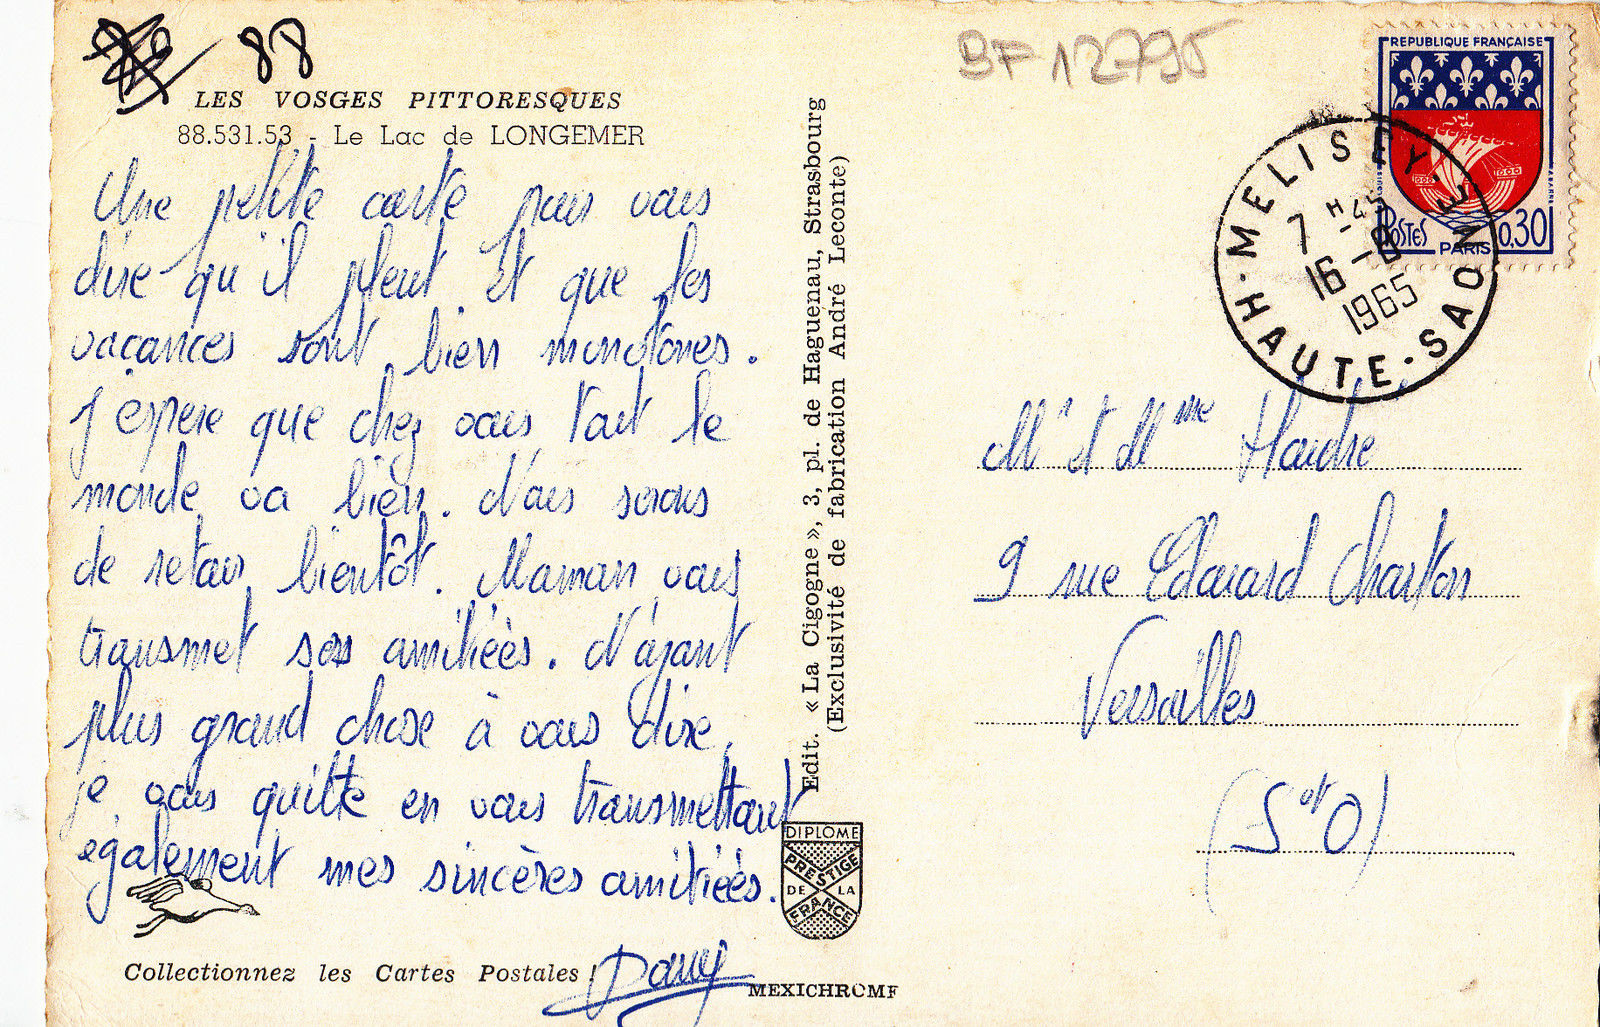 88
LES VOSGES PITTORESQUES
88.531.53 - Le Lac de LONGEMER
Une petite carte pour vous
dire qu'il pleut et que les
vacances sont bien monotones.
J'espere que chez vous tout le
monde va bien. Nous serons
de retour bientôt. Maman vous
transmet ses amitiées. N'ayant
plus grand chose à vous dire,
je vous quitte en vous transmettant
également mes sincères amitiées.
Dany
Collectionnez les Cartes Postales !
Edit. « La Cigogne », 3, pl. de Haguenau, Strasbourg
(Exclusivité de fabrication André Leconte)
DIPLOME
PRESTIGE
DE LA
FRANCE
MEXICHROME
BF 12795
REPUBLIQUE FRANÇAISE
POSTES
PARIS
0,30
MELISEY
7 H 45
16 - 8
1965
HAUTE-SAONE
Mr et Mme
9 rue Edouard Charton
Versailles
(S et O)